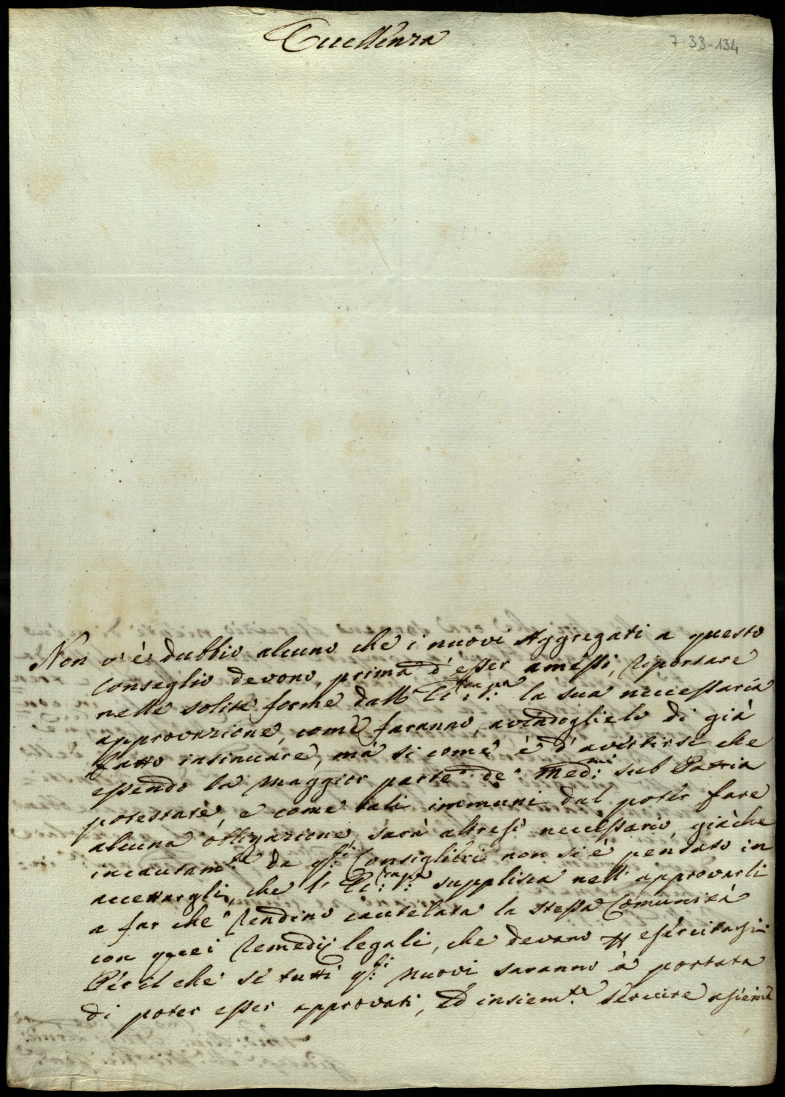 Eccellenza
7 33-134
Non v'è dubbio alcuno che i nuovi Aggregati a questo
Conseglio devono, prima d'esser amessi, riportare
nelle solite forme dall' la sua neccessaria
approvazione, come faranno, avendoglielo di già
fatto insinuare, mà si come è d'avertirsi che
essendo la maggior parte de' med:mi sub Patria
potestate, e come tali immuni dal poter fare
alcuna obligazione, sarà altresì neccessario, giàche
incautam:te da q:sti Consiglieri non si è pensato in
accettargli, che l' supplisca nell' approvarli
a far che rendino cautelata la stessa Comunità
con quei remedij legali, che devano esercitarsi:
Per il che se tutti q:sti nuovi saranno à portata
di poter esser approvati, ed insiem:te servire assieme